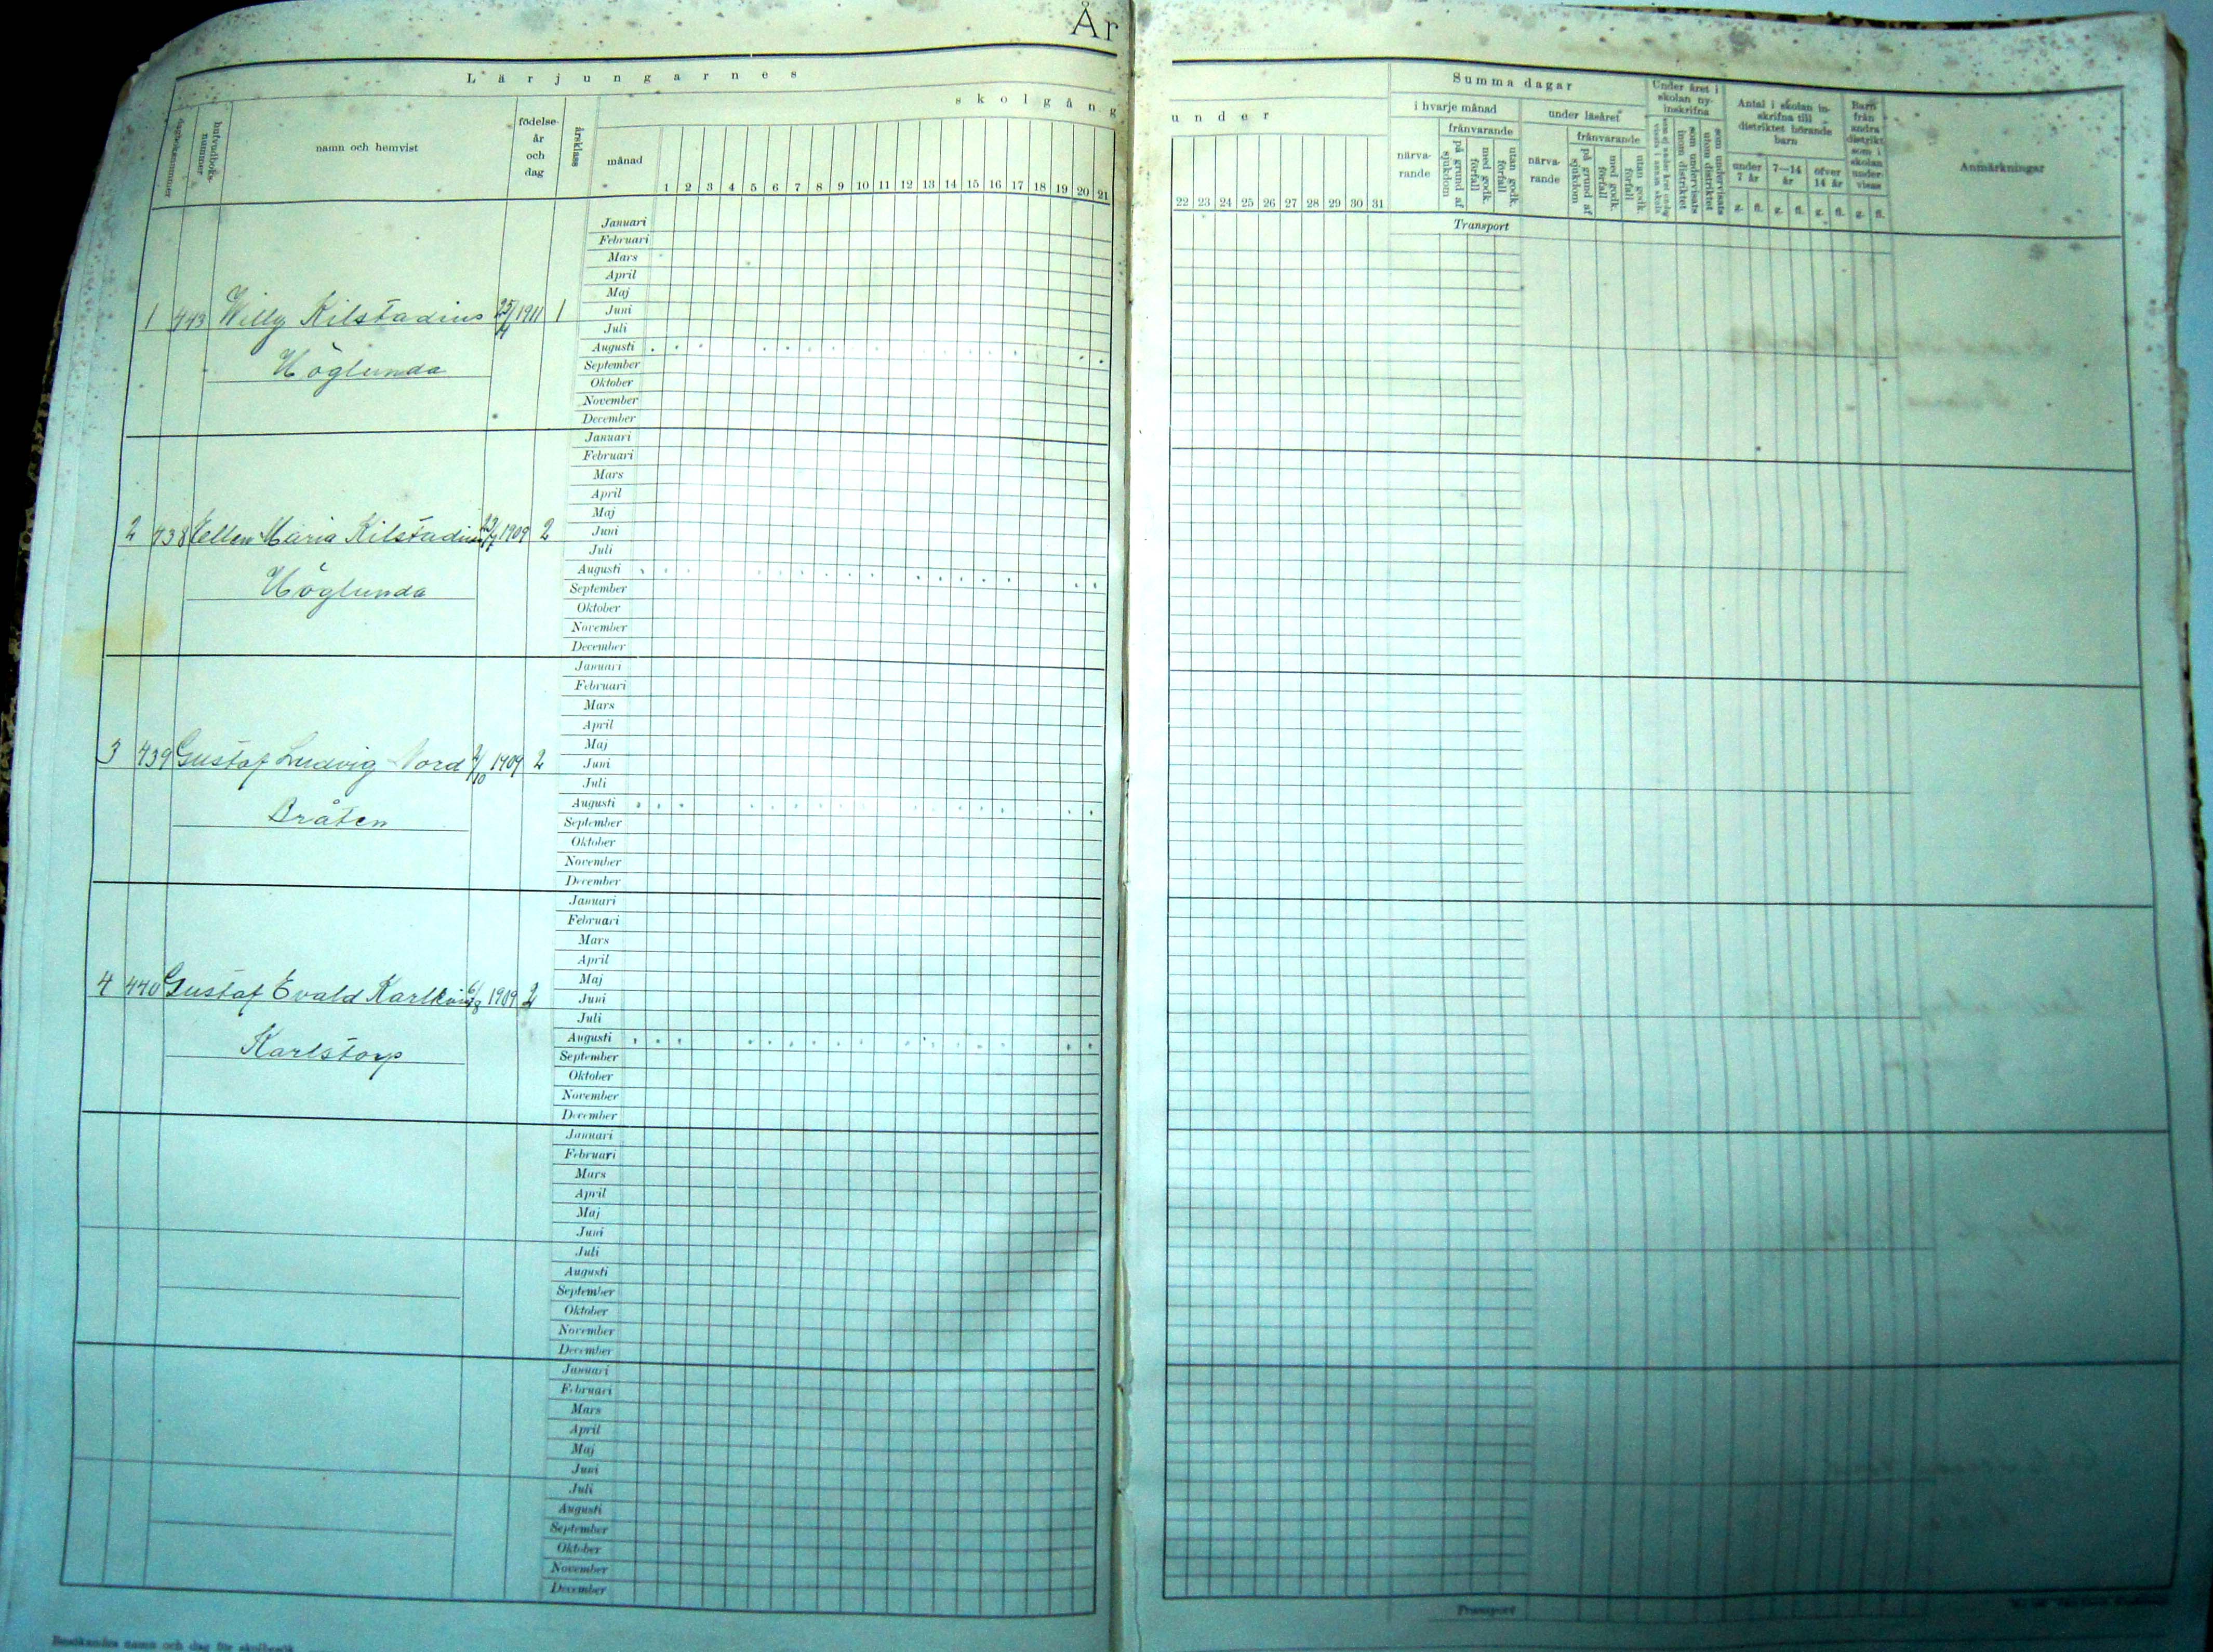 År
Lärjungarnes
skolgång
dagboksnummer
hufvudboks-nummer
namn och hemvist
födelse-
år
och
dag
årsklass
månad
1 2 3 4 5 6 7 8 9 10 11 12 13 14 15 16 17 18 19 20 21
under
22 23 24 25 26 27 28 29 30 31
Summa dagar
i hvarje månad
närva-
rande
frånvarande
på grund af sjukdom
med godk. förfall
utan godk. förfall
under läsåret
närva-
rande
frånvarande
på grund af sjukdom
med godk. förfall
utan godk. förfall
Under året i
skolan ny-
inskrifna
som undervisats inom distriktet
som undervisats utom distriktet
Antal i skolan in-
skrifna till
distriktet hörande
barn
under
7 år
7—14
år
öfver
14 år
Barn
från
andra
distrikt
som i
skolan
under-
visas
g. fl. g. fl. g. fl. g. fl.
Anmärkningar
Transport
Januari
Februari
Mars
April
Maj
1 443 Willy Kilstadius 25/4 1911 1 Juni
Juli
Augusti
Höglunda September
Oktober
November
December
Januari
Februari
Mars
April
Maj
2 438 Ellen Maria Kilstadius 1909 2 Juni
Juli
Augusti
Höglunda September
Oktober
November
December
Januari
Februari
Mars
April
Maj
3 439 Gustaf Ludvig Nord 1909 2 Juni
Juli
Augusti
Bråten September
Oktober
November
December
Januari
Februari
Mars
April
Maj
4 440 Gustaf Evald 1909 2 Juni
Juli
Augusti
Karlstorp September
Oktober
November
December
Januari
Februari
Mars
April
Maj
Juni
Juli
Augusti
September
Oktober
November
December
Januari
Februari
Mars
April
Maj
Juni
Juli
Augusti
September
Oktober
November
December
Transport
Besökandes namn och dag för skolbesök